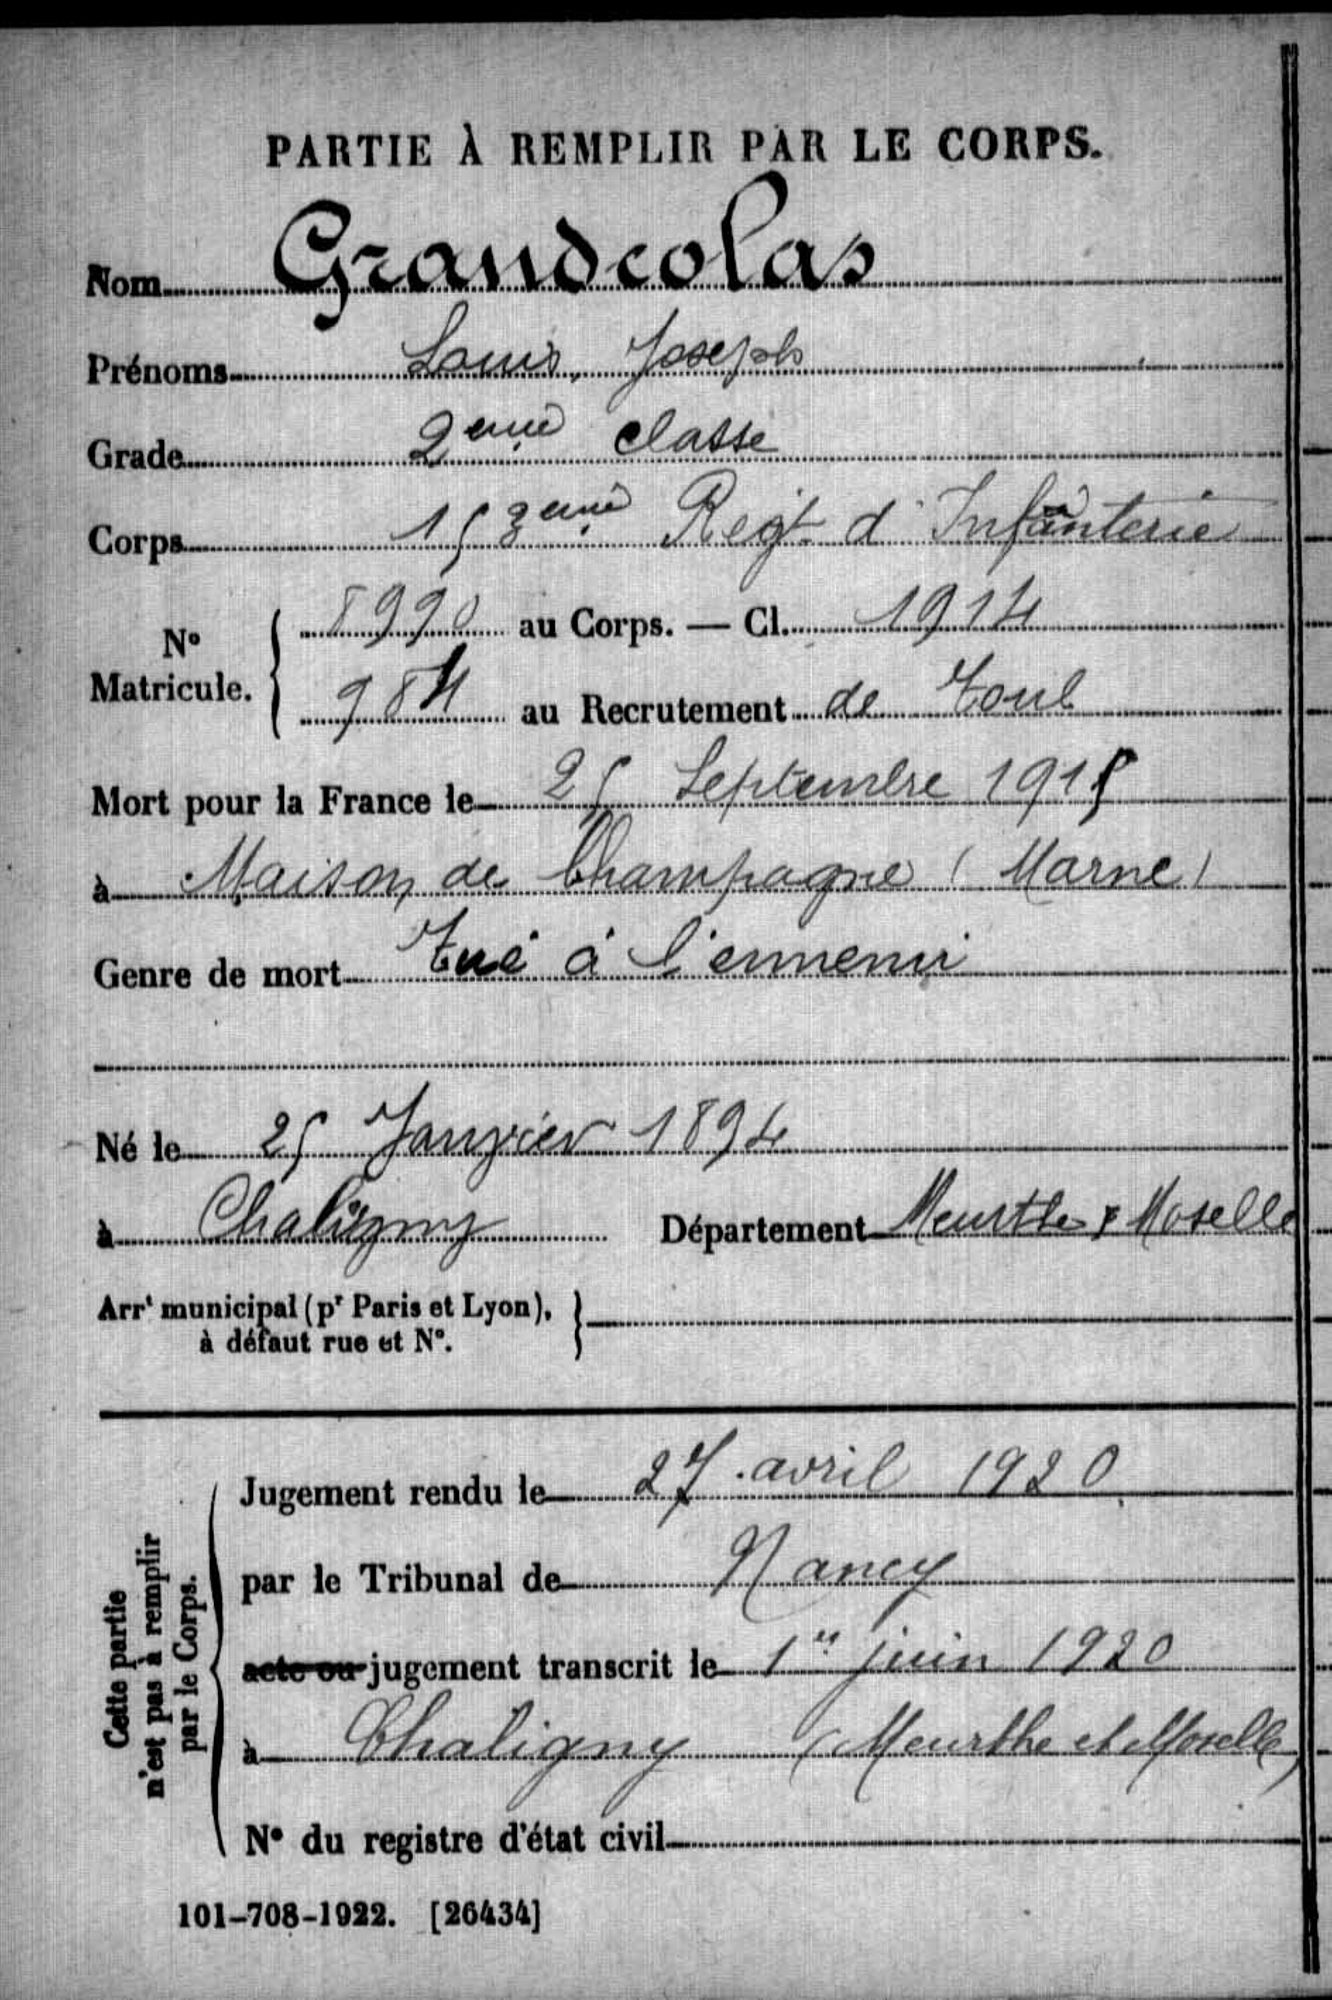 PARTIE À REMPLIR PAR LE CORPS.
Nom Grandcolas
Prénoms Louis, Joseph
Grade 2eme classe
Corps 153eme Regt d'Infanterie
N° Matricule. { 8990 au Corps. — Cl. 1914
984 au Recrutement de Toul
Mort pour la France le 25 Septembre 1915
à Maison de Champagne (Marne)
Genre de mort Tué à l'ennemi
Né le 25 Janvier 1894
à Chaligny Département Meurthe & Moselle
Arrt municipal (pr Paris et Lyon), }
à défaut rue et N°.
Cette partie
n'est pas à remplir
par le Corps.
Jugement rendu le 27 avril 1920
par le Tribunal de Nancy
acte ou jugement transcrit le 1er juin 1920
à Chaligny (Meurthe et Moselle)
N° du registre d'état civil
101-708-1922. [26434]